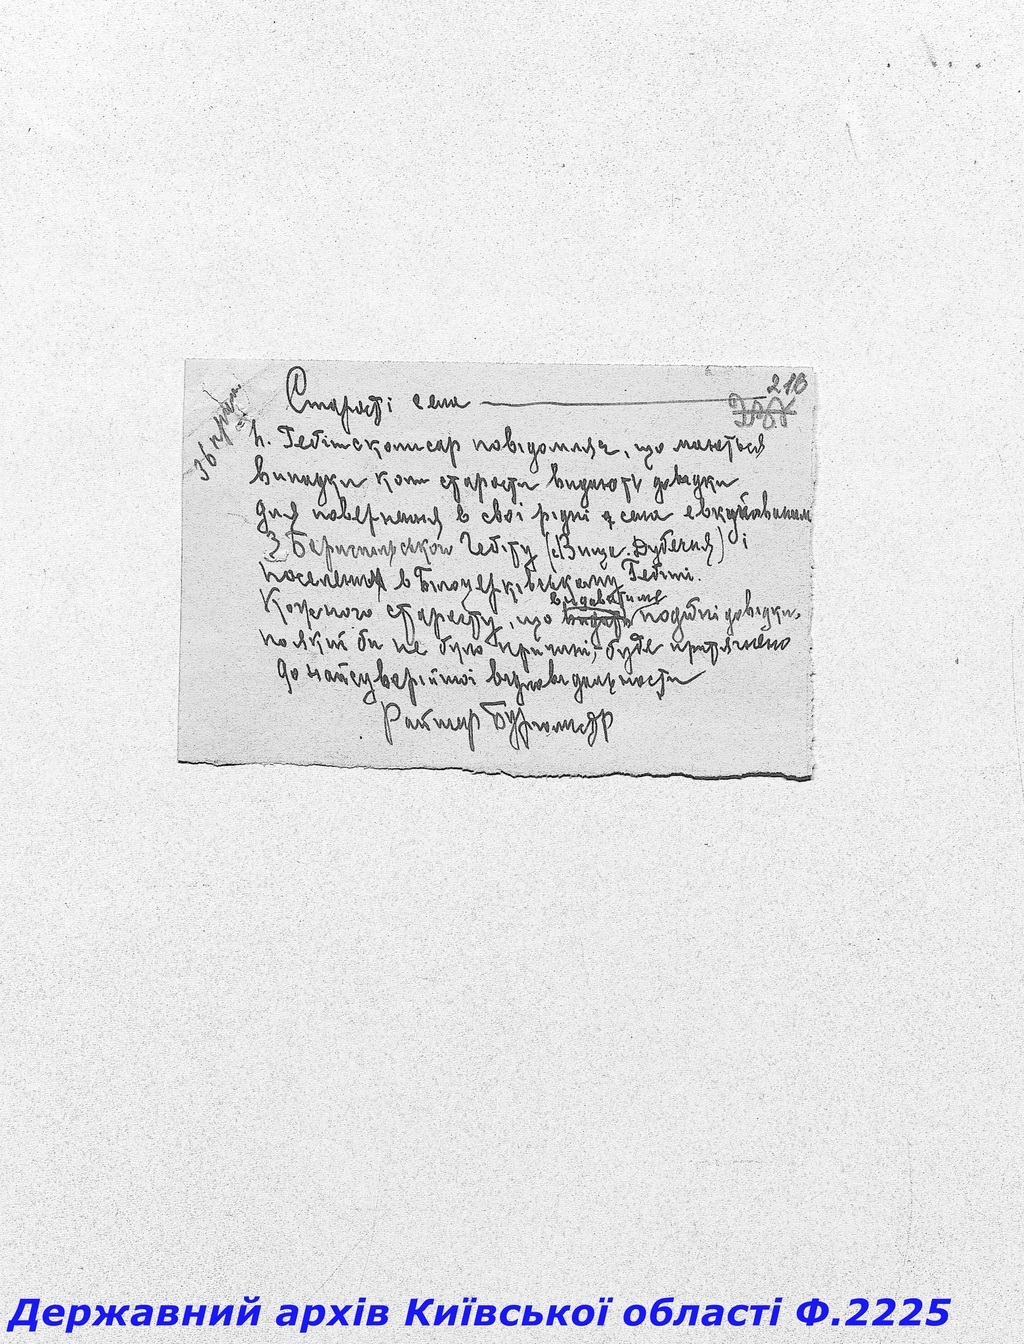 210
Старості села
36 прим.
п. Гебітскомісар повідомляє, що маються
випадки коли старости видають довідки
для повернення в свої рідні села евакуйованим
З Бориспольського Гебіту (с. Вище-Дубечня) і
поселення в Білоцерківському Гебіті.
Кожного старосту, що видаватиме подібні довідки,
по якій би не було причині, буде притягнено
до найсуворійшої відповідальности
Райшеф Бургомістр
Державний архів Київської області Ф.2225